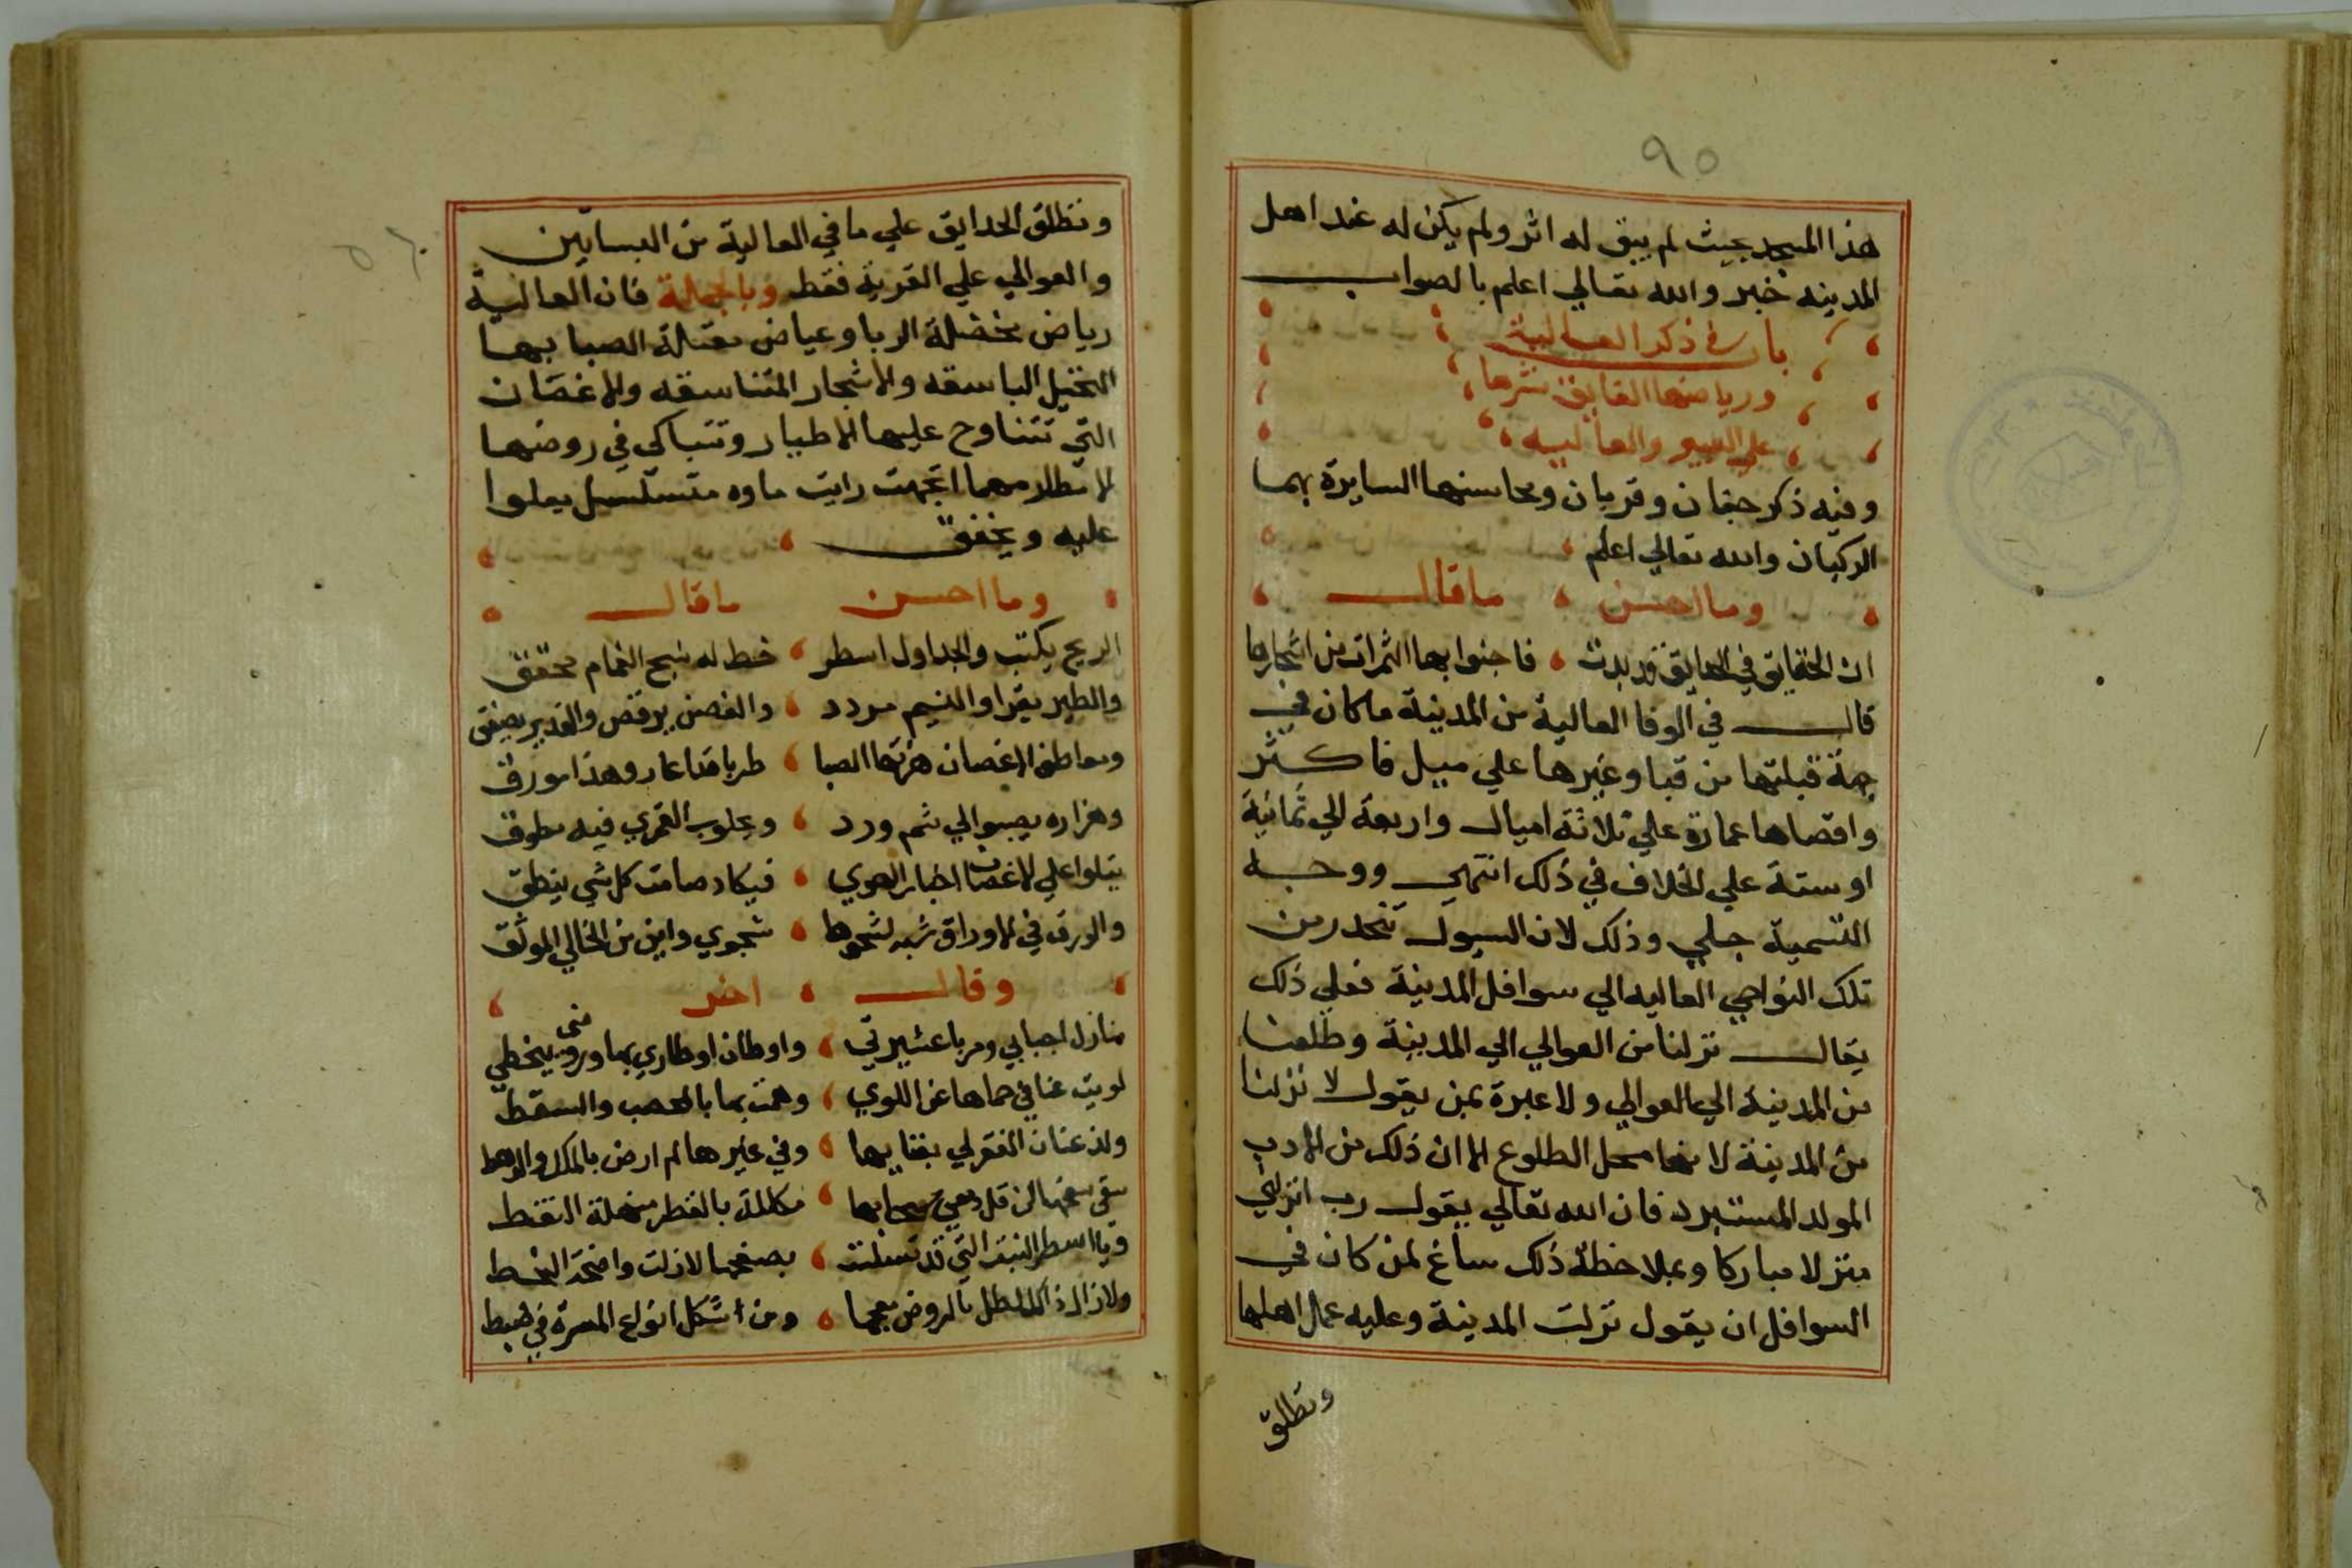 ٩٥
هذا المسجد بحيث لم يبق له اثر ولم يكن له عند اهل
المدينه خبر والله تعالي اعلم بالصواب
باب في ذكر العالية
ورياضها الفايق نشرها
علي العبير والغالية
وفيه ذكر جفان وقربان ومحاسنها السايرة بهما
الركبان والله تعالي اعلم
وما احسن ما قال
ان الحقايق في الحدايق قد بدت فاجنوا بها الثمرات من اشجارها
قال في الوفا العالية من المدينة ما كان في
جهة قبلتها من قبا وغيرها علي ميل فاكثر
واقصاها عمارة علي ثلاثة اميال واربعة الي ثمانية
او ستة علي الخلاف في ذلك انتهي ووجه
التسمية جلي وذلك لان السيول تنحدر من
تلك النواحي العاليه الي سوافل المدينة فعلي ذلك
يقال نزلنا من العوالي الي المدينة وطلعنا
من المدينة الي العوالي ولا عبرة بمن يقول لا نزلنا
من المدينة لانها محل الطلوع الا ان ذلك من الادب
المولد المستبرد فان الله تعالي يقول رب انزلني
منزلا مباركا وبملاحظة ذلك ساغ لمن كان في
السوافل ان يقول نزلت المدينة وعليه عمل اهلها
وتطلق
وتطلق الحدايق علي ما في العالية من البساتين
والعوالي علي القرية فقط وبالجملة فان العالية
رياض مخضلة الربا وغياض معتلة الصبا بها
النخيل الباسقه والاشجار المتناسقه والاغصان
التي تتناوح عليها الاطيار وتتباكى في روضها
الامطار مهما اتجهت رايت ماوه متسلسل يعلوا
عليه ويخفق
وما احسن ما قال
الريح يكتب والجداول اسطر خط له نسج الغمام محقق
والطير يقرا والنسيم مردد والغصن يرقص والغدير يصفق
ومعاطف الاغصان هزتها الصبا طربا فذا عار وهذا مورق
وهزاره يصبوا الي شم ورد ويجلوب القمري فيه مطوق
يتلوا علي الاغصان اخبار الهوي فيكاد صامت كل شي ينطق
والورق في الاوراق شبه لشجوها شجوي واين من الخالي الموثق
وقال اخر
منازل احبابي ومربا عشيرتي واوطان اوطاري بها ومنى يخطي
لويت عنا في حماها عن اللوي وهمت بها بالحصب والسقط
ولذ عنان الفقر لي بفنايها وفي غيرها لم ارض بالملك والرهط
سقي سفحها ان قل دمعي سحابها مكللة بالقطر منهلة النقط
ويا اسطر النبت التي قد تسلسلت بصفحها لازلت واضحة الخط
ولا زال ذاك الطل بالروض معجما ومن اشكل انواع المسرة في ضبط